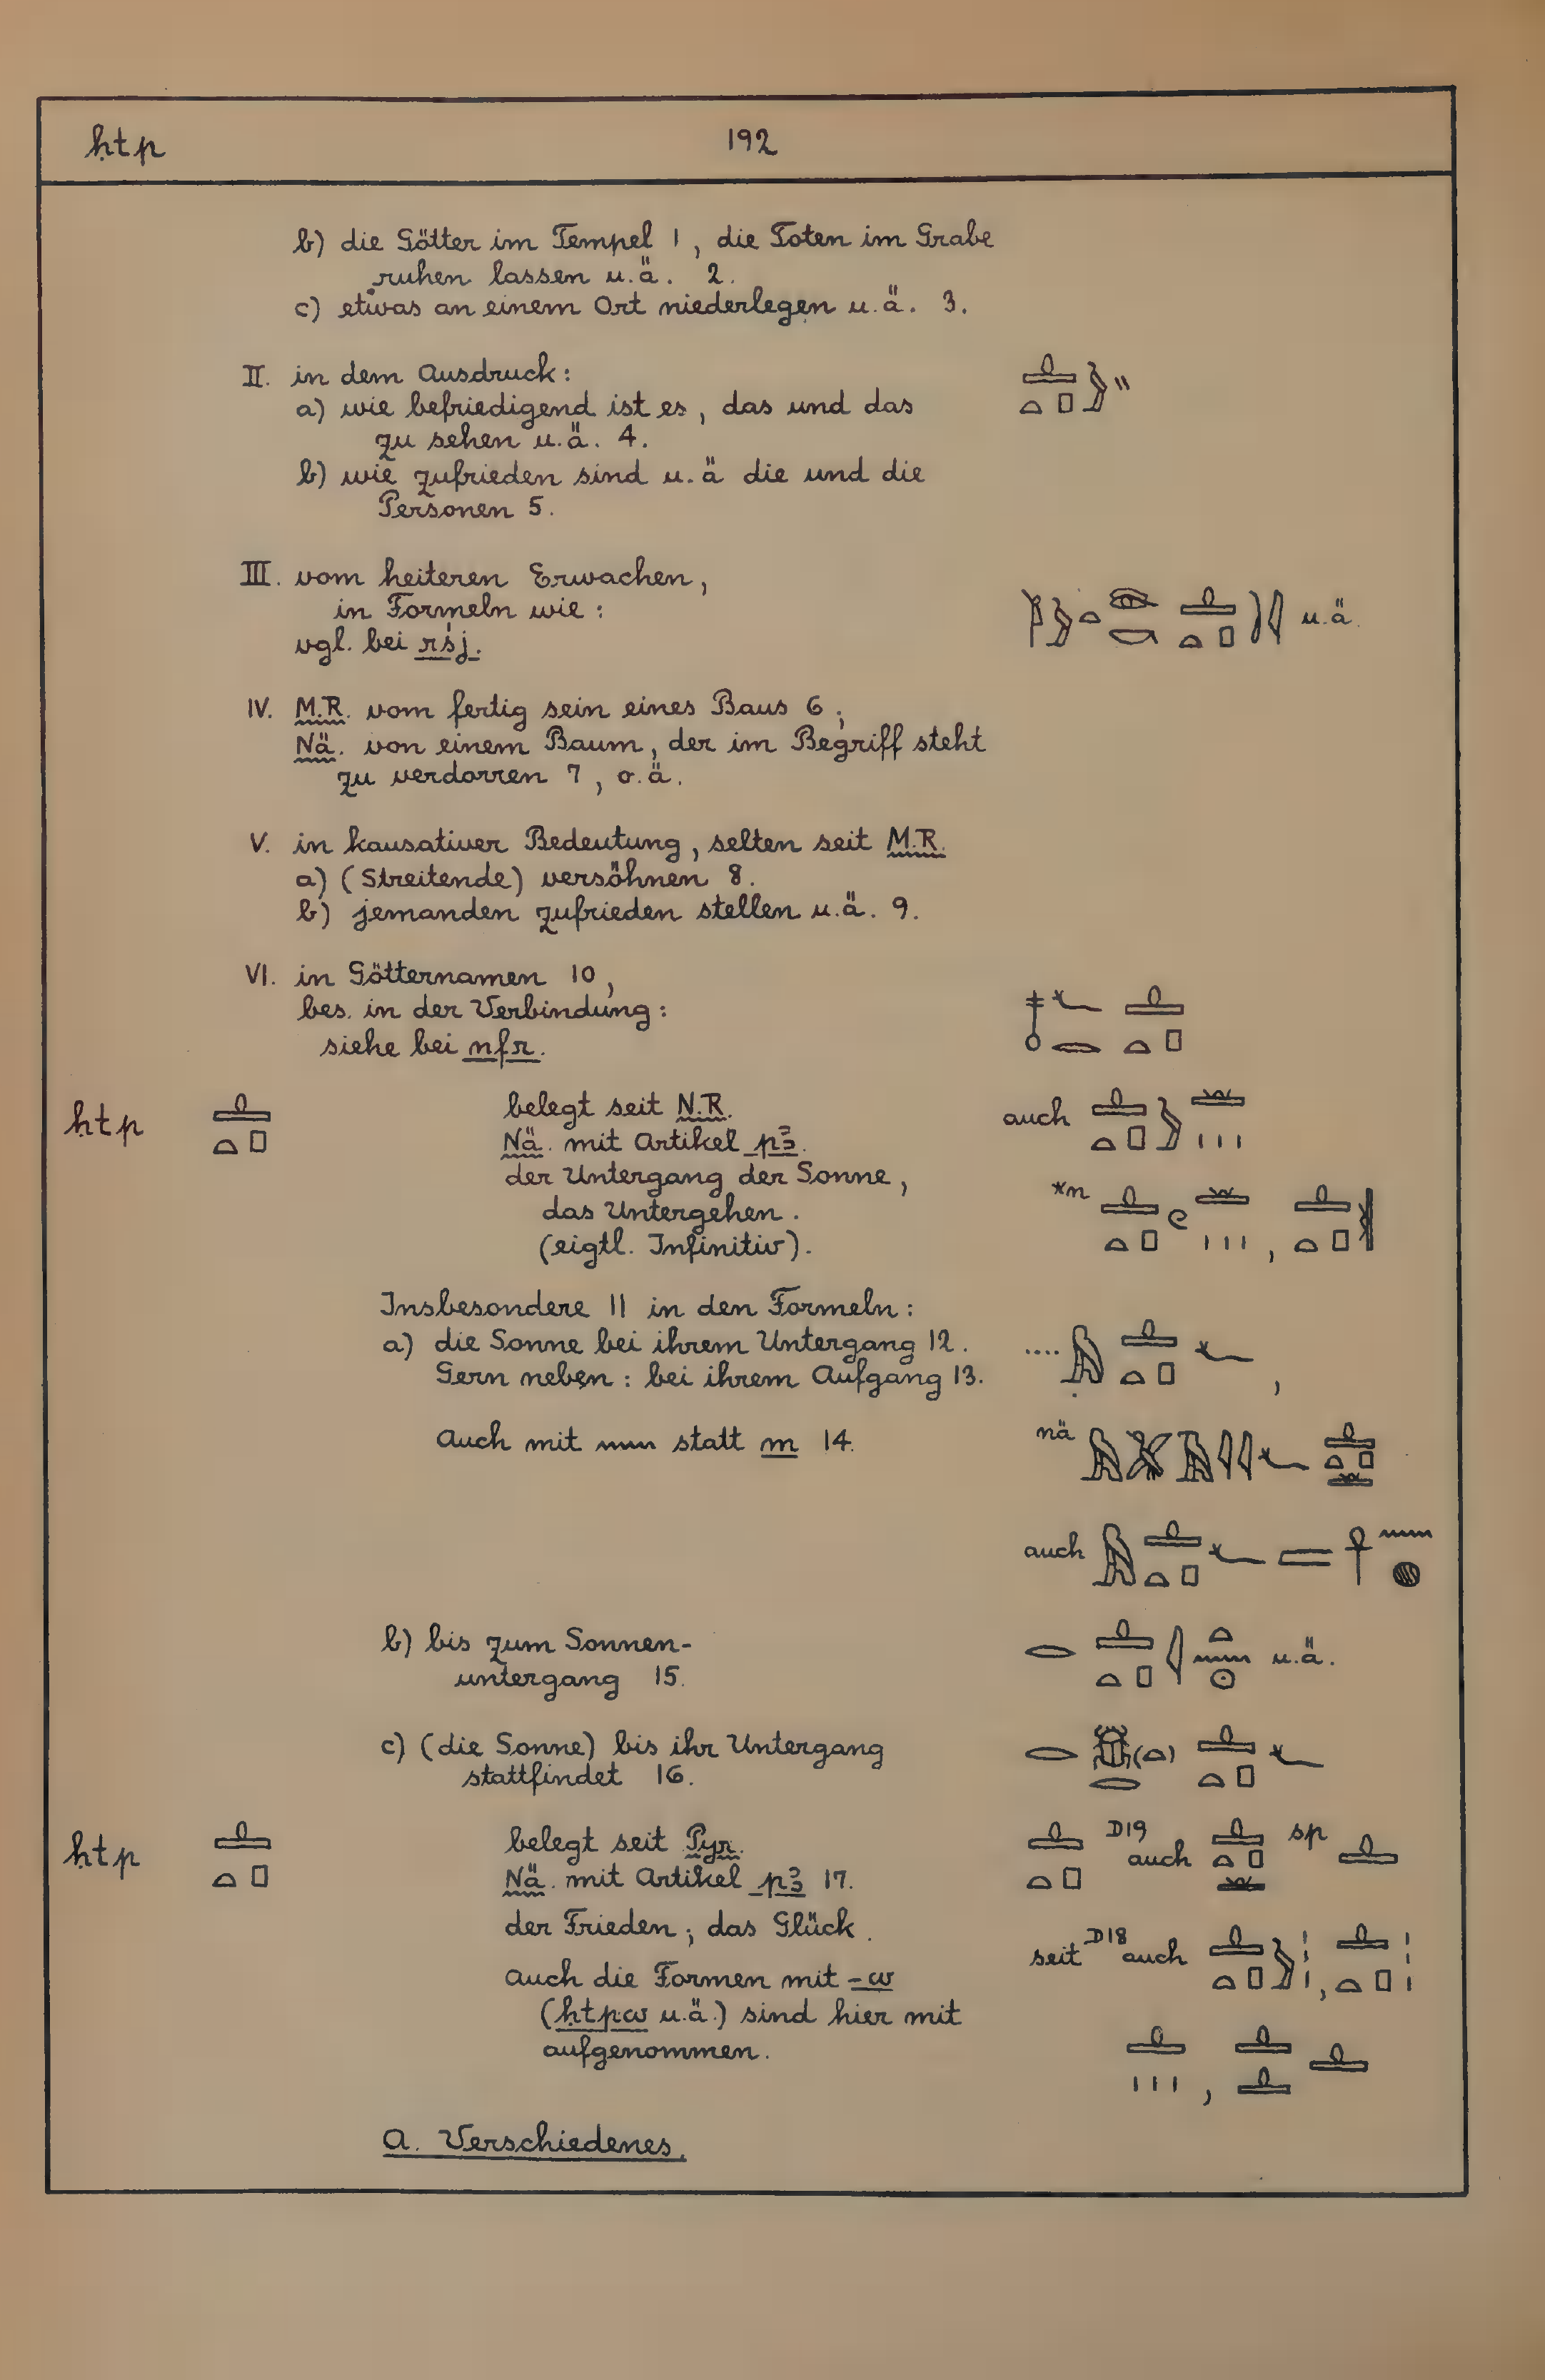 ḥtp 192
b) die Götter im Tempel 1, die Toten im Grabe
ruhen lassen u.ä. 2.
c) etwas an einem Ort niederlegen u.ä. 3.
II. in dem Ausdruck:
a) wie befriedigend ist es, das und das
zu sehen u.ä. 4.
b) wie zufrieden sind u.ä die und die
Personen 5.
III. vom heiteren Erwachen,
in Formeln wie: u.ä.
vgl. bei rśj.
IV. M.R. vom fertig sein eines Baus 6;
Nä. von einem Baum, der im Begriff steht
zu verdorren 7, o.ä.
V. in kausativer Bedeutung, selten seit M.R.
a) (Streitende) versöhnen 8.
b) jemanden zufrieden stellen u.ä. 9.
VI. in Götternamen 10,
bes. in der Verbindung:
siehe bei nfr.
ḥtp 𓊵𓏏𓊪 belegt seit N.R. auch
Nä. mit Artikel pꜣ.
der Untergang der Sonne,
das Untergehen.
(eigtl. Infinitiv).
Insbesondere 11 in den Formeln:
a) die Sonne bei ihrem Untergang 12. ....𓅓𓊵𓏏𓊪𓆑,
Gern neben: bei ihrem Aufgang 13.
Auch mit 𓈖 statt m 14. nä
auch
b) bis zum Sonnen-
untergang 15. u.ä.
c) (die Sonne) bis ihr Untergang 𓂋𓆣𓂋(𓏏)𓊵𓏏𓊪𓆑
stattfindet 16.
ḥtp 𓊵𓏏𓊪 belegt seit Pyr. 𓊵𓏏𓊪 D19 auch sp 𓊵
Nä. mit Artikel pꜣ 17.
der Frieden; das Glück.
seit D18 auch
auch die Formen mit -w
(ḥtpw u.ä.) sind hier mit
aufgenommen.
𓊵𓏥, 𓊵𓊵𓊵
A. Verschiedenes.